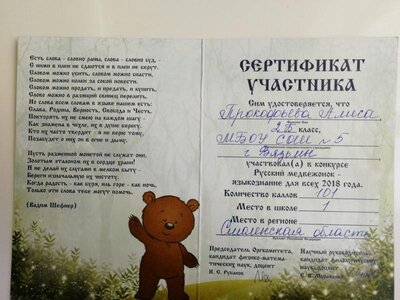 Есть слова - словно раны, слова - словно суд, -
С ними в плен не сдаются и в плен не берут.
Словом можно убить, словом можно спасти,
Словом можно полки за собой повести.
Словом можно продать, и предать, и купить,
Слово можно в разящий свинец перелить.
Но слова всем словам в языке нашем есть:
Слава, Родина, Верность, Свобода и Честь.
Повторять их не смею на каждом шагу
Как знамёна в чехле, их в душе берегу.
Кто их часто твердит - я не верю тому,
Позабудет о них он в огне и дыму.
Пусть разменной монетой не служат они,
Золотым эталоном их в сердце храни!
И не делай их слугами в мелком быту -
Береги изначальную их чистоту.
Когда радость - как буря, иль горе - как ночь,
Только эти слова тебе могут помочь.
(Вадим Шефнер)
СЕРТИФИКАТ
УЧАСТНИКА
Сим удостоверяется, что
Прокофьева Алиса
2 класс,
МБОУ СОШ №5
г. Вязьмы
участвовал(а) в конкурсе
Русский медвежонок -
языкознание для всех 2018 года.
Количество баллов 101
Место в школе 1
Место в регионе
Смоленская область
Председатель Оргкомитета,
кандидат физико-матема-
тических наук, доцент
И. С. Рубанов
Научный руководитель,
кандидат филологических
наук, доцент